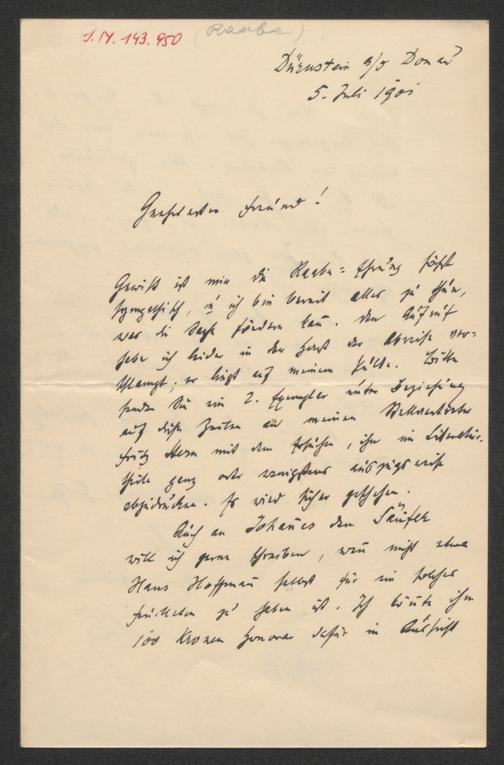 I.N. 143.950 (Raabe)
Dürnstein a/d Donau
5. Juli 1901
Geehrtester Freund!
Gewiß ist mir die Raabe-Ehrung höchst
sympathisch, u ich bin bereit alles zu thun,
was die Sache fördern kann. Den Aufruf
habe ich leider in der Hast der Abreise ver-
schlampt; er liegt auf meinem Pulte. Bitte
senden Sie ein 2. Exemplar unter Beziehung
auf diese Zeilen an meinen Stellvertreter
Fritz Stern mit dem Ersuchen, ihn im Literatur-
theile ganz oder wenigstens auszugsweise
abzudrucken. Es wird sicher geschehen.
Auch an Johannes den
will ich gerne schreiben, wenn nicht etwa
Hans Hoffmann selbst für ein solches
zu haben ist. Ich könnte ihm
100 Kronen Honorar dafür in Aussicht